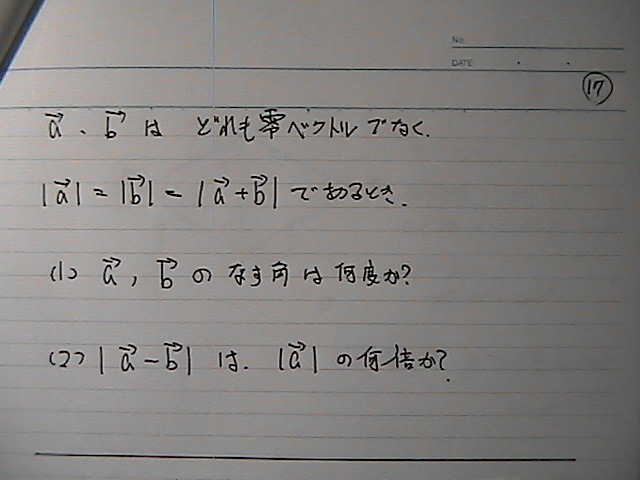 No.
DATE
17
a⃗、b⃗ は どれも零ベクトルでなく、
|a⃗| = |b⃗| = |a⃗+b⃗| であるとき、
(1) a⃗, b⃗ の なす角は何度か?
(2) |a⃗-b⃗| は、|a⃗| の何倍か?